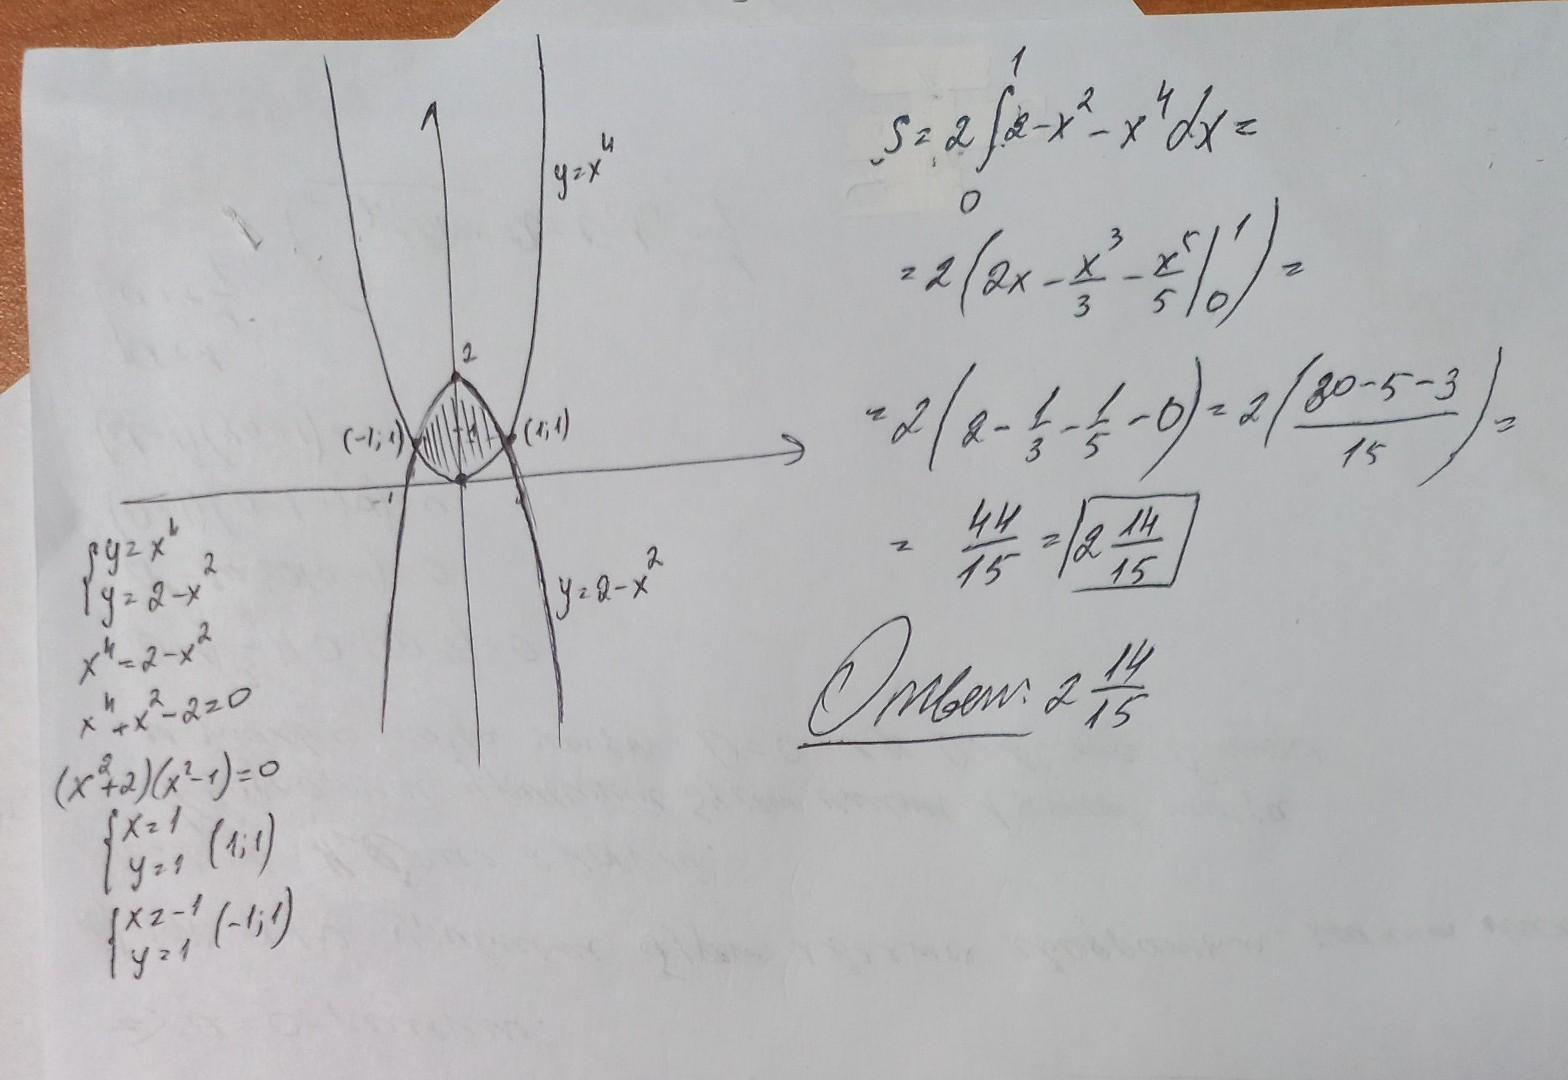 y=x⁴
2
(-1;1)
1
(1;1)
-1
1
y=2-x²
{y=x⁴
{y=2-x²
x⁴=2-x²
x⁴+x²-2=0
(x²+2)(x²-1)=0
{x=1
{y=1 (1;1)
{x=-1
{y=1 (-1;1)
S=2∫₀¹2-x²-x⁴dx=
=2(2x-x³/3-x⁵/5|₀¹)=
=2(2-1/3-1/5-0)=2((30-5-3)/15)=
=44/15=2 14/15
Ответ: 2 14/15